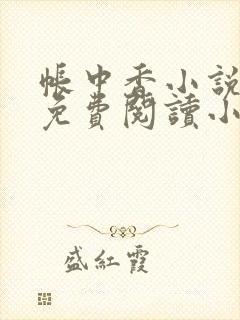 帳中香小說
免費閱讀小
盛紅霞